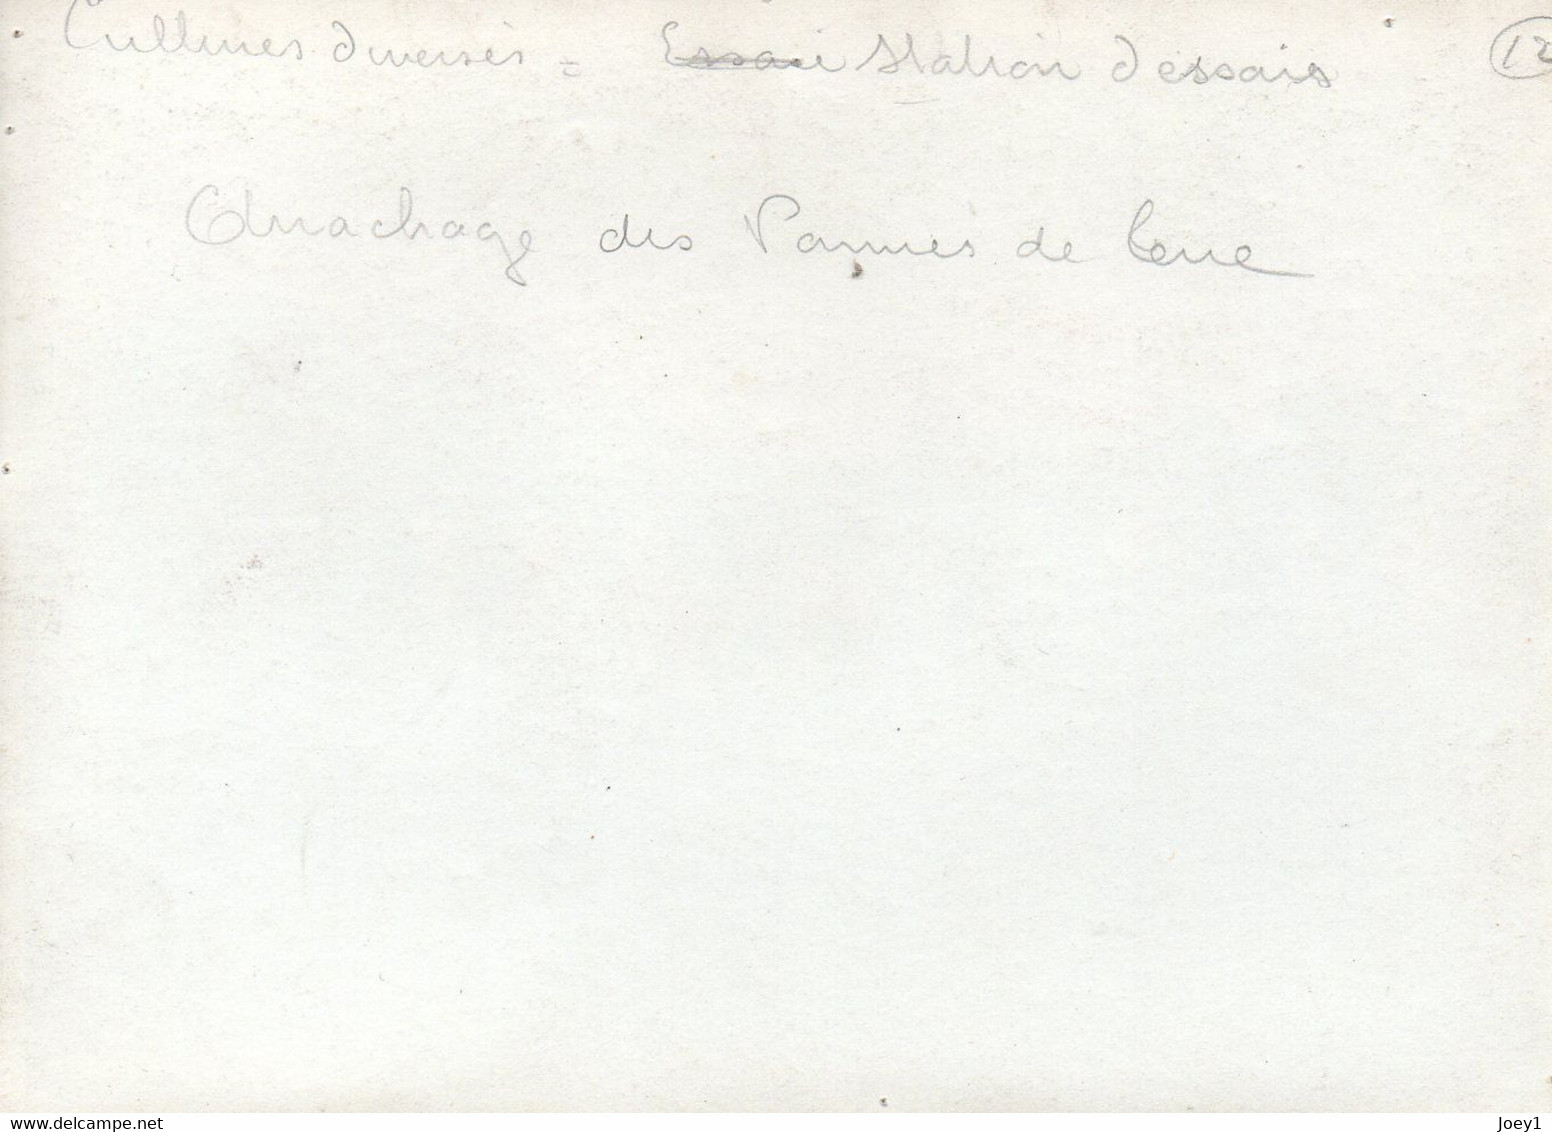 Cultures diverses = Essai Station d'essais 12
Arrachage des Pommes de terre
delcampe.net
Joey1